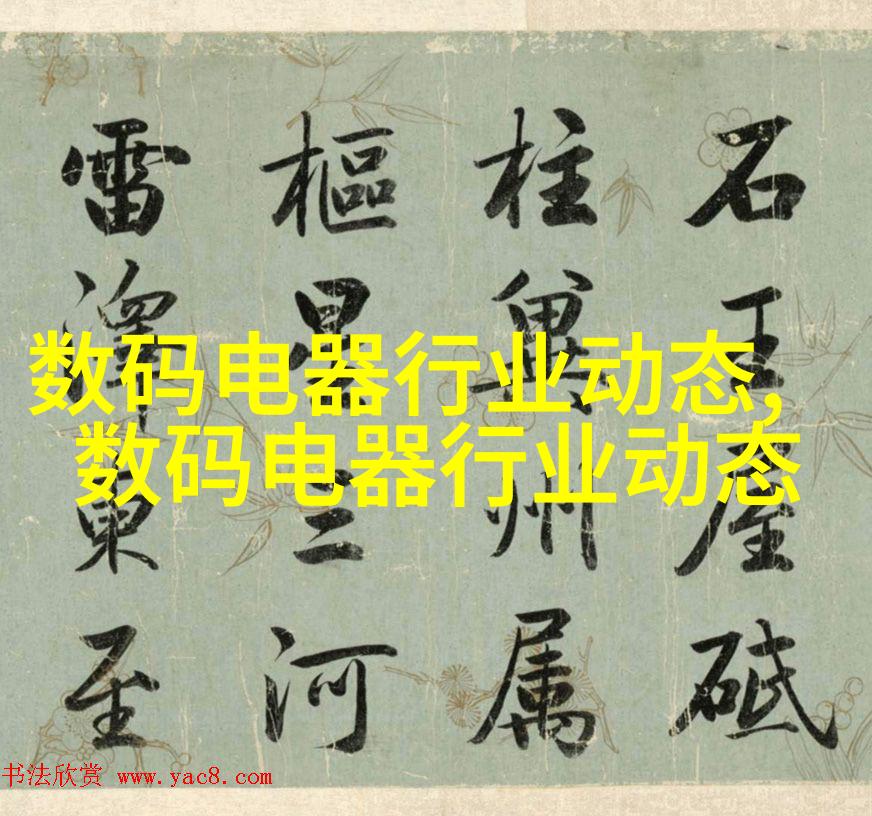 石王屋砥
柱冀州属
樞星三河
雷澤東至
数码电器行业动态,
数码电器行业动态
书法欣赏 www.yac8.com